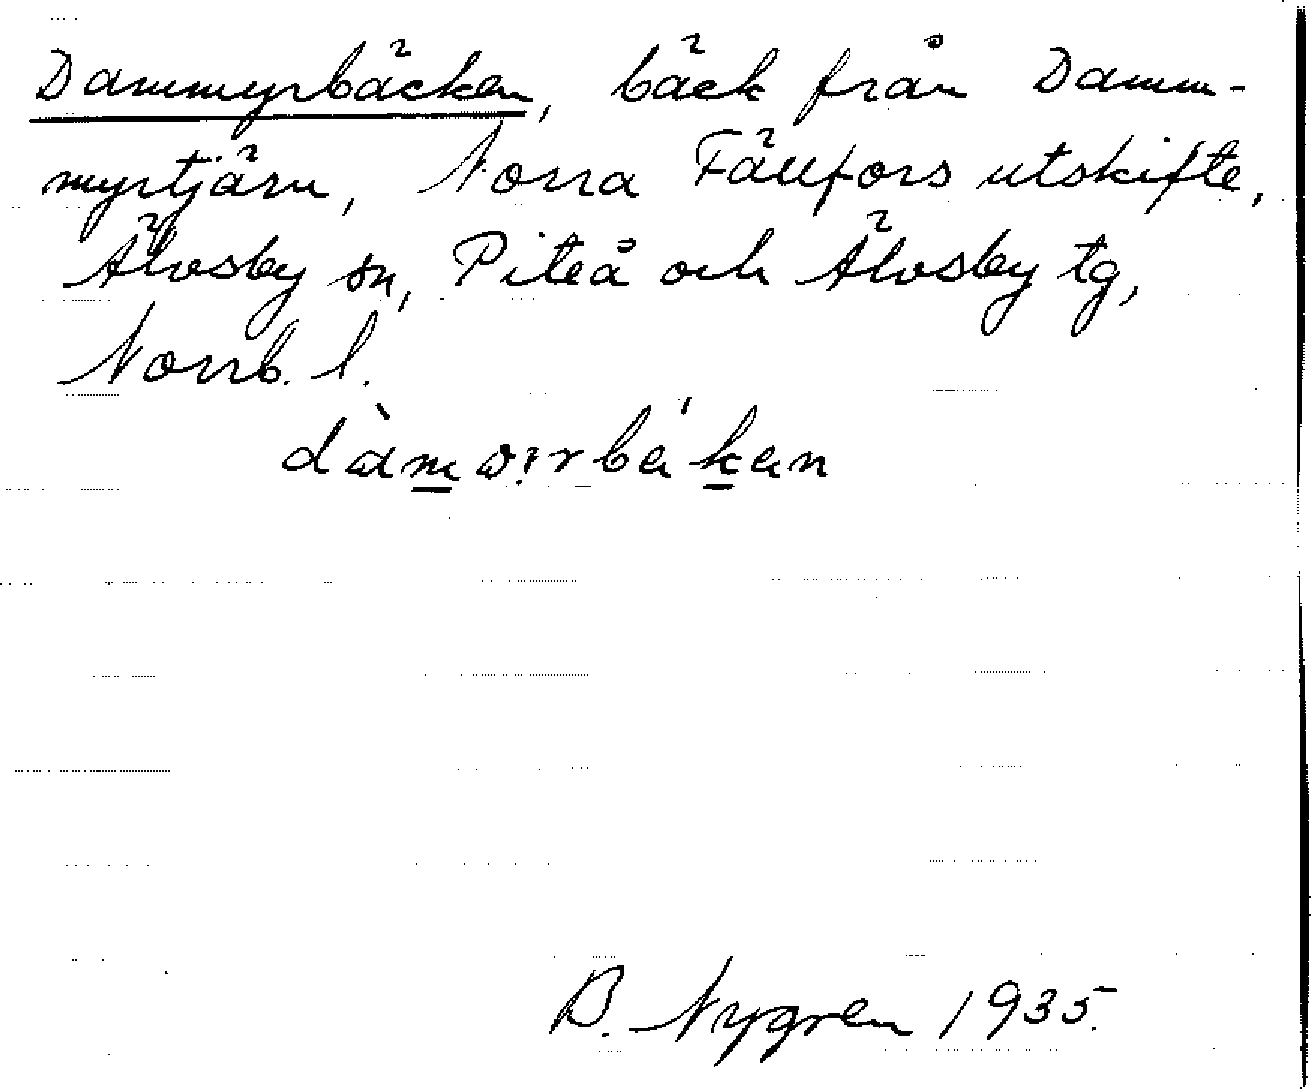 Dammyrbäcken, bäck från Damm-
myrtjärn, Norra Fällfors utskifte,
Älvsby sn, Piteå och Älvsby tg,
Norrb. l.
B. Nygren 1935.